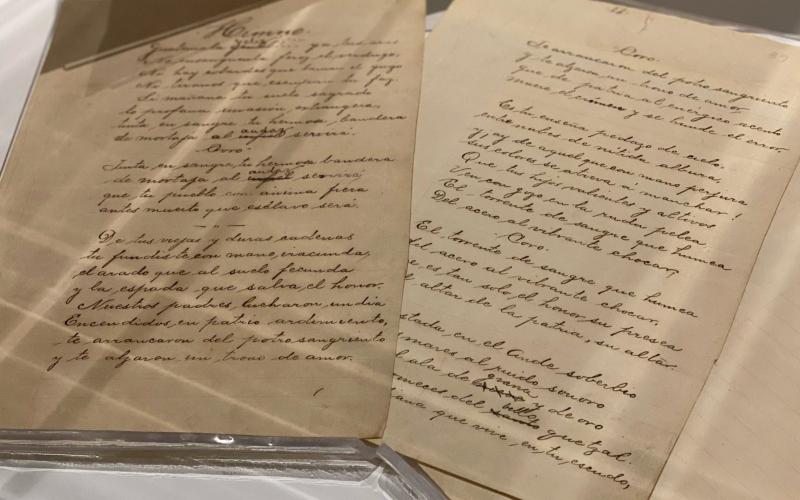 Himno.
Guatemala ya tus aras
No ensangrienta feroz el verdugo,
No hay cobardes que laman el yugo
No tiranos que escupan tu faz.
Si mañana tu suelo sagrado
lo profana invasión extrangera,
tinta en sangre tu hermosa bandera
de mortaja al audaz servirá.
Coro
Tinta en sangre tu hermosa bandera
de mortaja al audaz servirá
que tu pueblo con ánima fiera
antes muerto que esclavo será.
De tus viejas y duras cadenas
tu fundiste con mano iracunda,
el arado que al suelo fecunda
y la espada que salva el honor.
Nuestros padres lucharon un dia
Encendidos en patrio ardimiento,
te arrancaron del potro sangriento
y te alzaron un trono de amor.
Coro.
Te arrancaron del potro sangriento
y te alzaron un trono de amor,
que de patria al enérgico acento
muere el crimen y se hunde el error.
Es tu enseña pedazo de cielo
entre nubes de nítida albura,
y ¡ay de aquel que con mano perjura
sus colores se atreva á manchar!
Que tus hijos valientes y altivos
Ven con gozo en la ruda pelea
El torrente de sangre que humea
Del acero al vibrante chocar,
Coro.
El torrente de sangre que humea
del acero al vibrante chocar,
es tan solo el honor su presea
altar de la patria, su altar.
en el Ande soberbio
mares al ruido sonoro
ala de grana y de oro
del quetzal.
que vive en tu escudo,